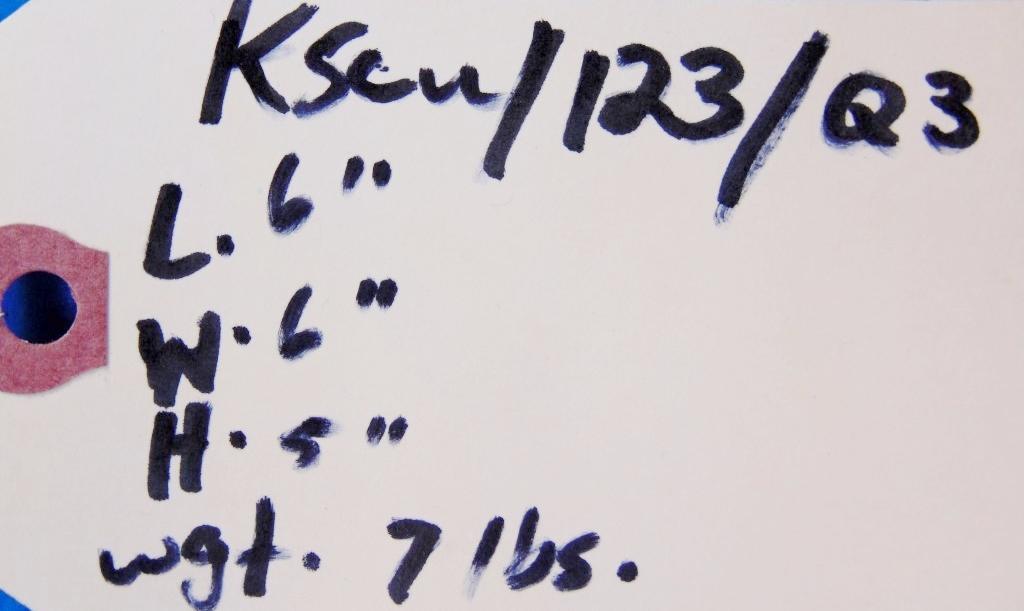 KScu/123/Q3
L. 6"
W. 6"
H. 5"
wgt. 7 lbs.